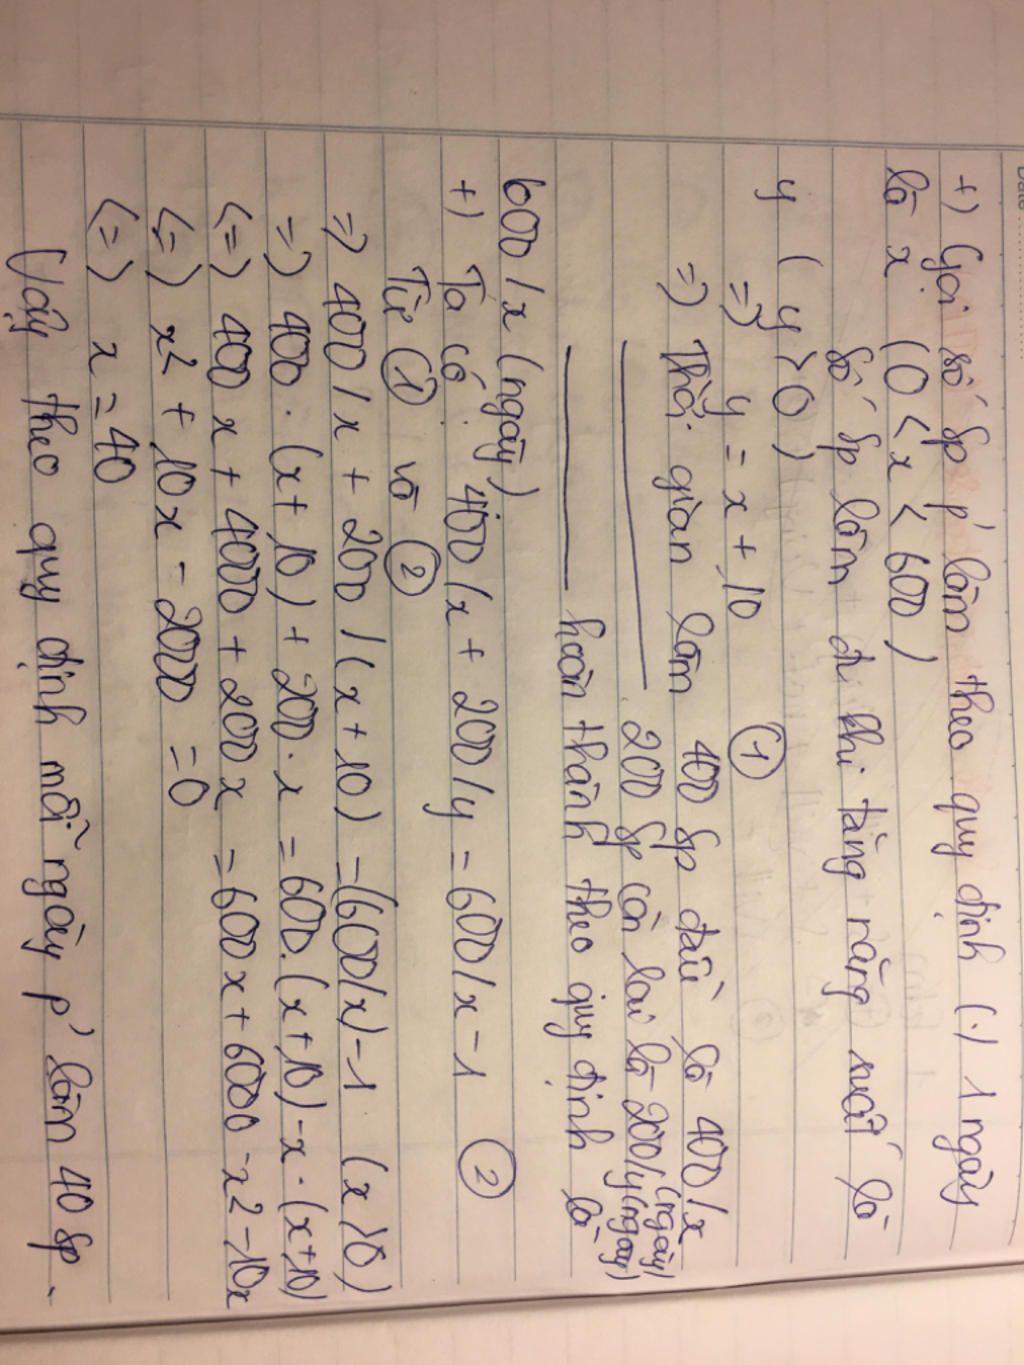 Date
+) Gọi số sp p' làm theo quy định (.) 1 ngày
là x (0 < x < 600)
Số sp làm đc khi tăng năng suất là
y (y > 0)
=> y = x + 10 (1)
=> Thời gian làm 400 sp đầu là 400/x (ngày)
200 sp còn lại là 200/y (ngày)
hoàn thành theo quy định là
600/x (ngày)
+) Ta có 400/x + 200/y = 600/x - 1 (2)
Từ (1) và (2)
=> 400/x + 200/(x+10) = (600/x) - 1 (x > 0)
=> 400.(x+10) + 200.x = 600.(x+10) - x.(x+10)
<=> 400x + 4000 + 200x = 600x + 6000 - x² - 10x
<=> x² + 10x - 2000 = 0
<=> x = 40
Vậy theo quy định mỗi ngày p' làm 40 sp.